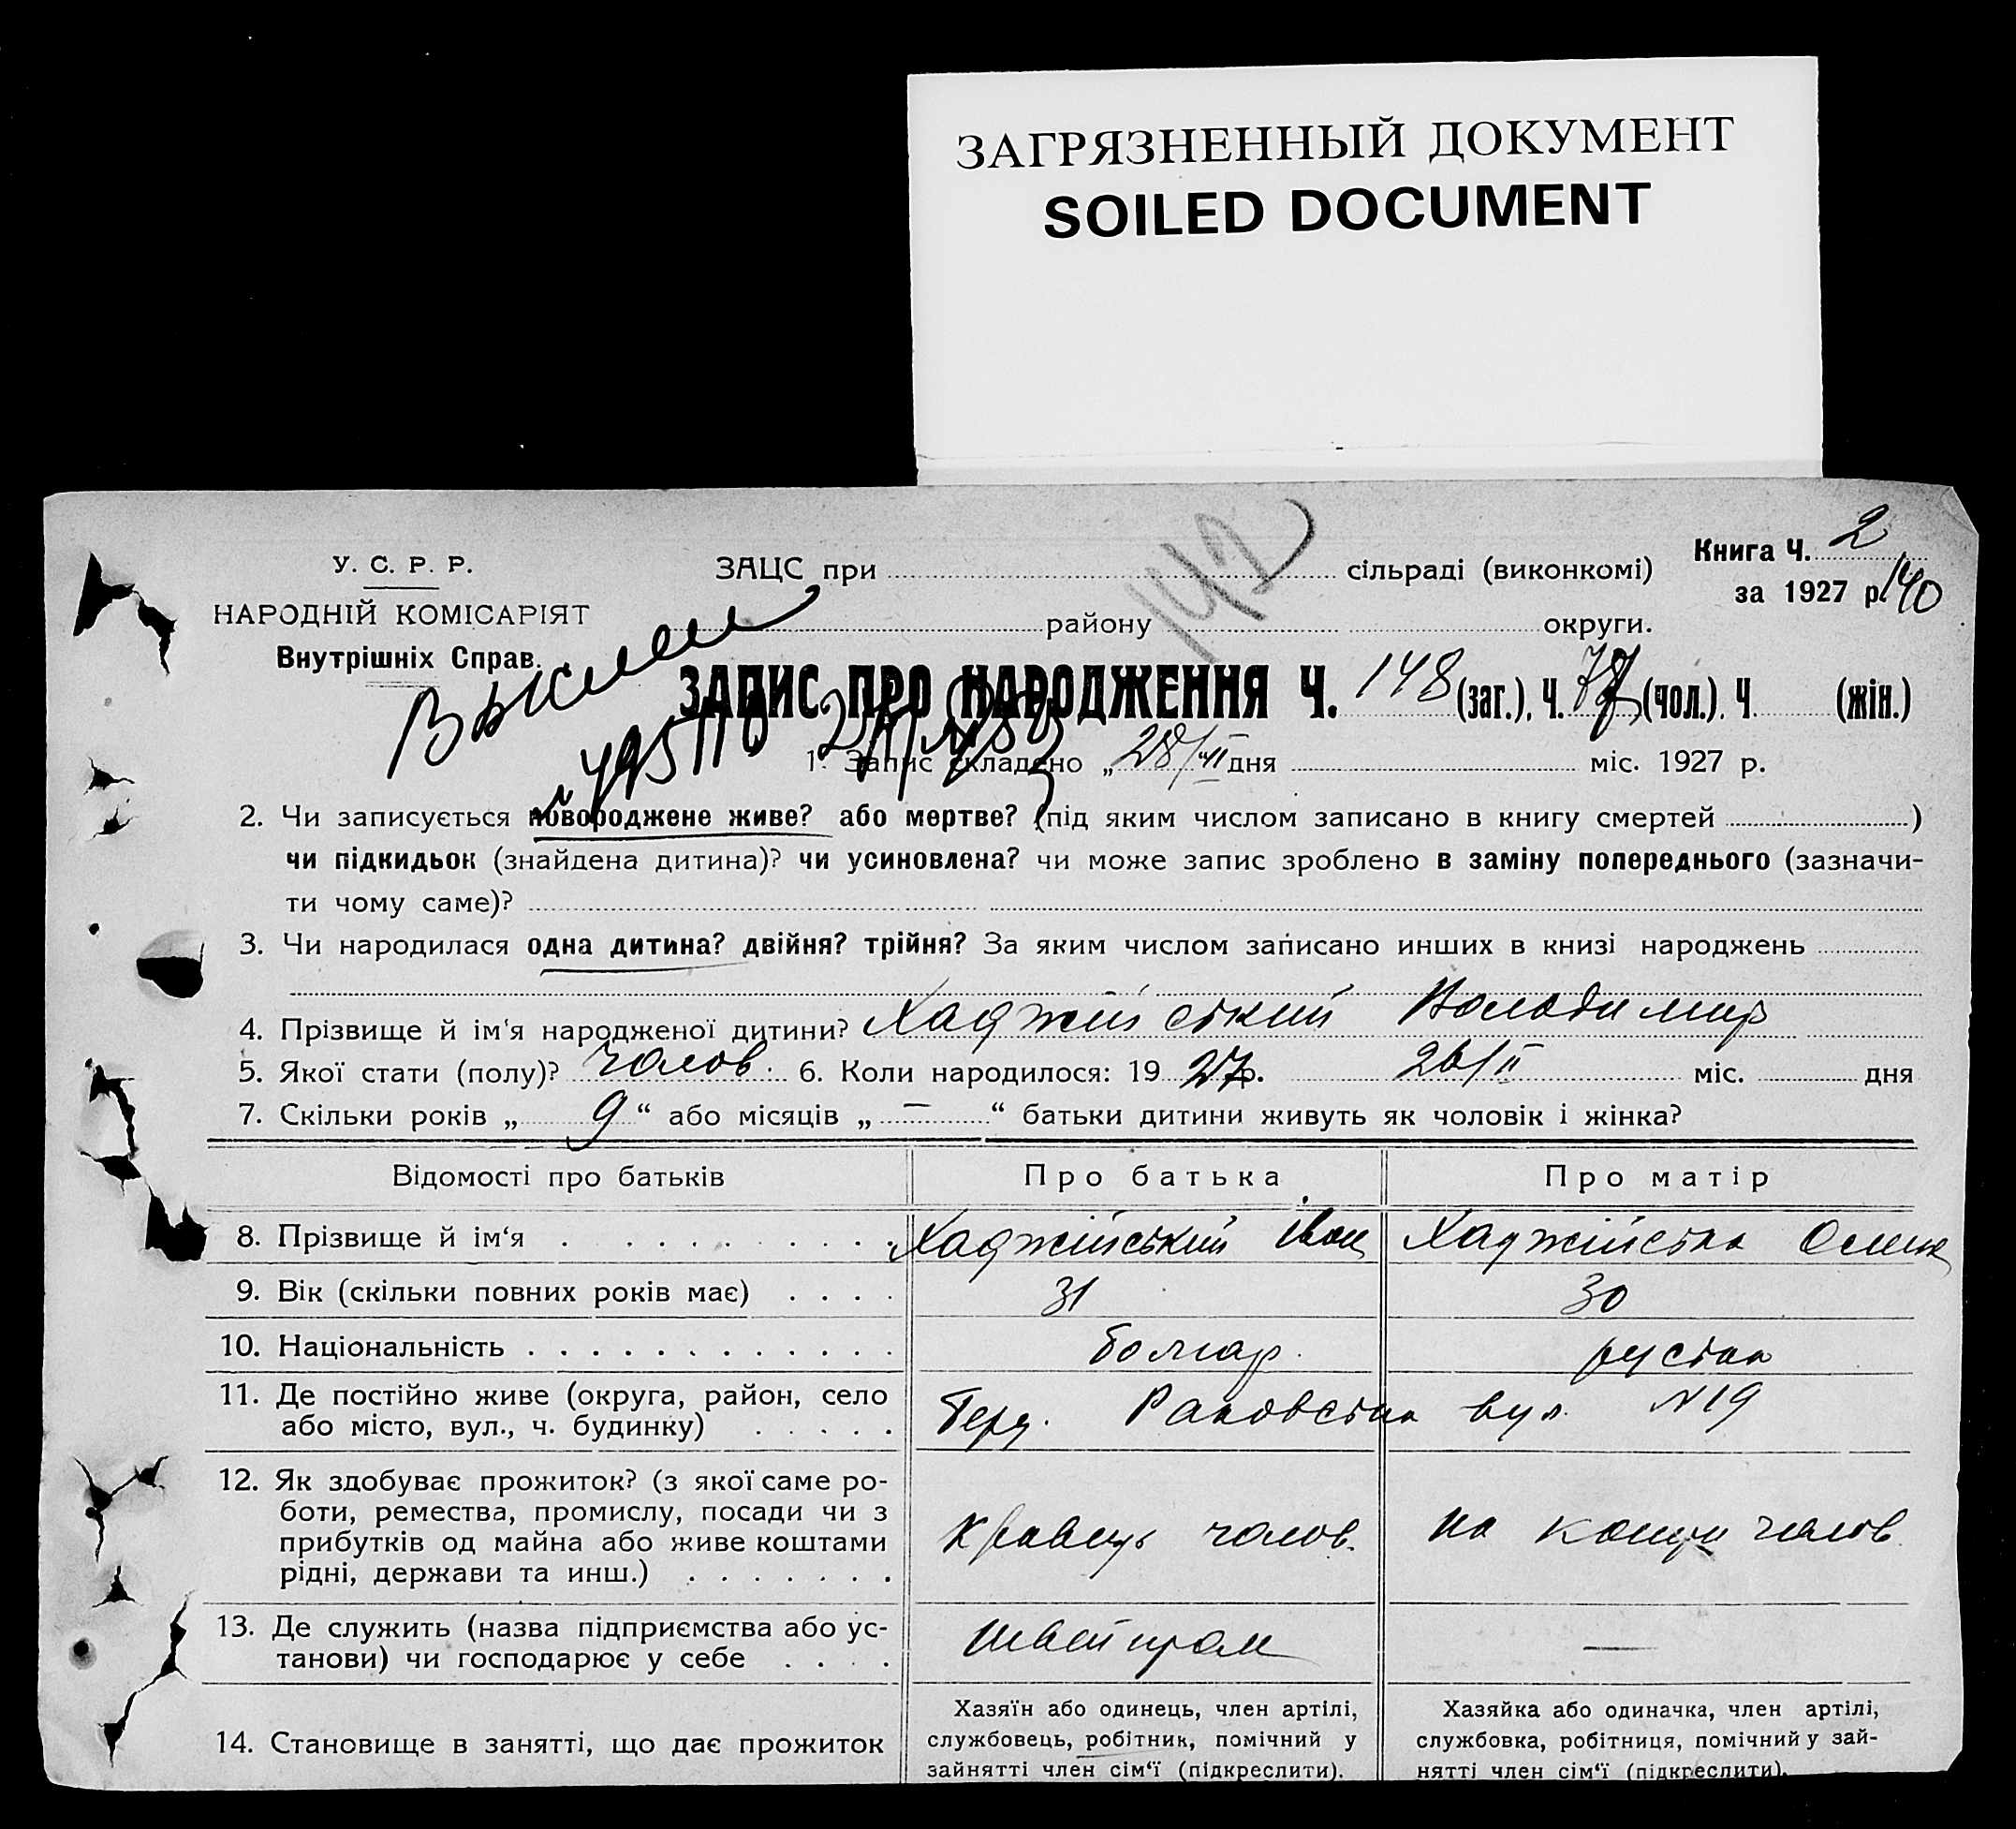 ЗАГРЯЗНЕННЫЙ ДОКУМЕНТ
SOILED DOCUMENT
У. С. Р. Р.
НАРОДНІЙ КОМІСАРІЯТ
Внутрішніх Справ.
ЗАЦС при сільраді (виконкомі)
району округи.
142
Книга Ч. 2
за 1927 р. 140
ЗАПИС ПРО НАРОДЖЕННЯ Ч. 148 (заг.), Ч. (чол.), Ч. (жін.)
1. Запис складено „28/II дня міс. 1927 р.
2. Чи записується новороджене живе? або мертве? (під яким числом записано в книгу смертей )
чи підкидьок (знайдена дитина)? чи усиновлена? чи може запис зроблено в заміну попереднього (зазначи-
ти чому саме)?
3. Чи народилася одна дитина? двійня? трійня? За яким числом записано инших в книзі народжень
4. Прізвище й ім'я народженої дитини? Хаджійський Володимир
5. Якої стати (полу)? чолов. 6. Коли народилося: 1927 р. 26/II міс. дня
7. Скільки років „ 9 “ або місяців „ — “ батьки дитини живуть як чоловік і жінка?
Відомості про батьків Про батька Про матір
8. Прізвище й ім‘я . . . . . . . . . . Хаджійський Іван Хаджійська Олена
9. Вік (скільки повних років має) . . . . 31 30
10. Національність . . . . . . . . . . . . . болгар. руська
11. Де постійно живе (округа, район, село
або місто, вул., ч. будинку) . . . . . Раковська вул. №19
12. Як здобуває прожиток? (з якої саме ро-
боти, ремества, промислу, посади чи з
прибутків од майна або живе коштами
рідні, держави та инш.) . . . . . . . Кравець чолов. на кошти чолов.
13. Де служить (назва підприємства або ус-
танови) чи господарює у себе . . . . Швейпром —
14. Становище в занятті, що дає прожиток
Хазяїн або одинець, член артілі,
службовець, робітник, помічний у
зайнятті член сім‘ї (підкреслити).
Хазяйка або одиначка, член артілі,
службовка, робітниця, помічний у зай-
нятті член сім‘ї (підкреслити).